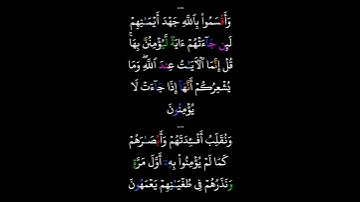 وَأَقۡسَمُواْ بِٱللَّهِ جَهۡدَ أَيۡمَٰنِهِمۡ
لَئِن جَآءَتۡهُمۡ ءَايَةٞ لَّيُؤۡمِنُنَّ بِهَاۚ
قُلۡ إِنَّمَا ٱلۡأٓيَٰتُ عِندَ ٱللَّهِۖ وَمَا
يُشۡعِرُكُمۡ أَنَّهَآ إِذَا جَآءَتۡ لَا
يُؤۡمِنُونَ
وَنُقَلِّبُ أَفۡـِٔدَتَهُمۡ وَأَبۡصَٰرَهُمۡ
كَمَا لَمۡ يُؤۡمِنُواْ بِهِۦٓ أَوَّلَ مَرَّةٖ
وَنَذَرُهُمۡ فِي طُغۡيَٰنِهِمۡ يَعۡمَهُونَ